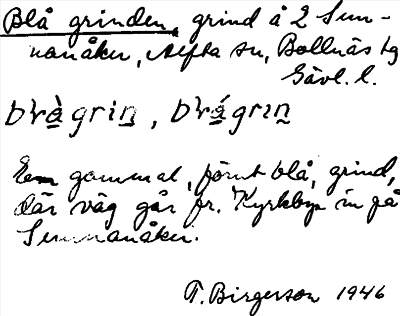 Blå grinden, grind å 2 Sun-
nanåker, Alfta sn, Bollnäs tg
Gävl. l.
bʹrà̱griṉ, bʹrá̱grɪn̰
En gammal, förut blå, grind,
där väg går fr. Kyrkbyn in på
Sunnanåker.
T. Birgerson 1946